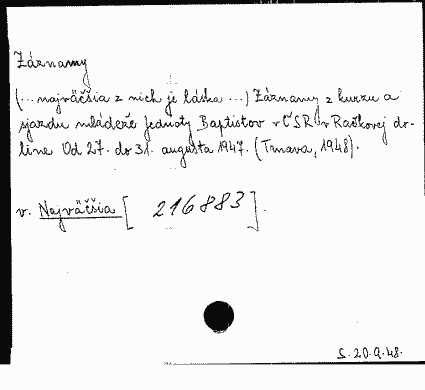 Záznamy
(... najväčšia z nich je láska ...) Záznamy z kurzu a
sjazdu mládeže Jednoty Baptistov v ČSR v Račkovej do-
line Od 27. do 31. augusta 1947. (Trnava, 1948).
v. Najväčšia [ 216883 ].
S. 20.9.48.